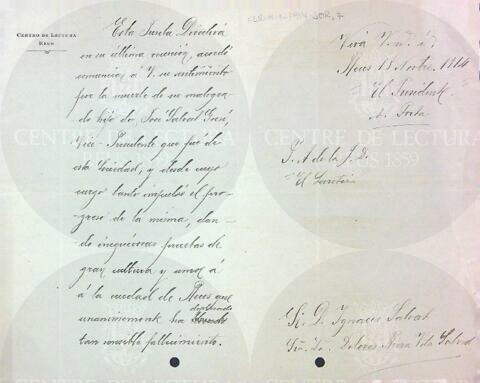 CENTRO DE LECTURA
REUS
Esta Junta Directiva
en su última reunión, acordó
comunicar á V. su sentimiento
por la muerte de su malogra-
do hijo D. José Salvat
Vice-Presidente que fué de
esta Sociedad, y desde cuyo
cargo tanto impulsó el pro-
greso de la misma, dan-
do inequívocas pruebas de
gran cultura y amor á
á la ciudad de Reus que
unánimemente ha deplorado
tan sensible fallecimiento.
Viva V. m. a.
Reus 18 Novbre. 1914
El Presidente
P. A de la J. D.
El Secretari
Sr. D. Ignacio Salvat
Sra. Da. Dolores Vda Salvat
CENTRE DE LECTURA
REUS 1859